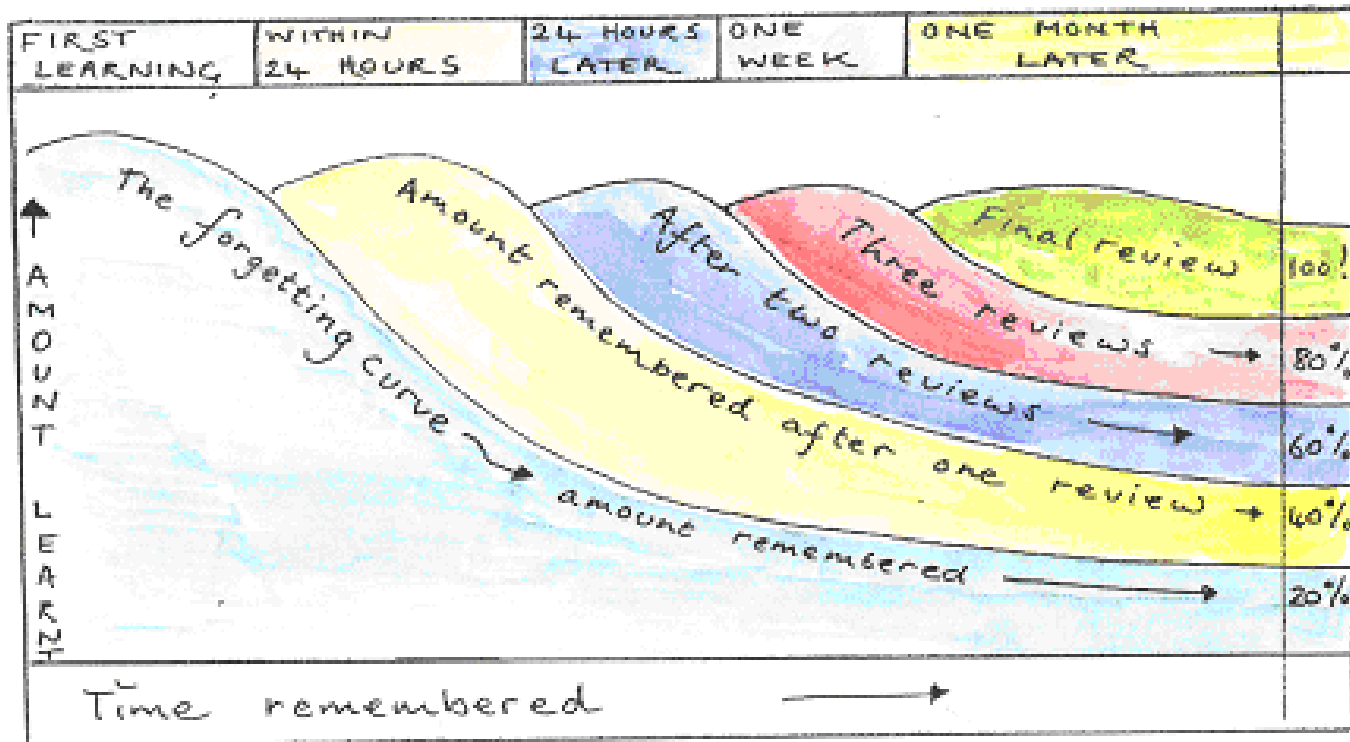 FIRST
LEARNING
WITHIN
24 HOURS
24 HOURS
LATER
ONE
WEEK
ONE MONTH
LATER
AMOUNT LEARNT
The forgetting curve
amount remembered
Amount remembered after one review
After two reviews
Three reviews
Final review
100!
80%
60%
40%
20%
Time remembered